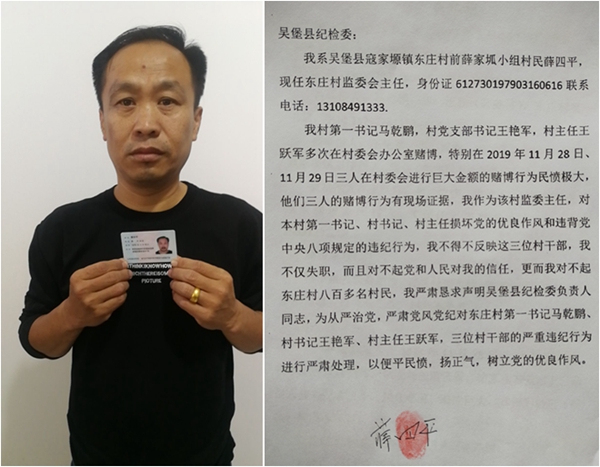 THINK KNOW HOW
PICTURE
吴堡县纪检委:
我系吴堡县寇家塬镇东庄村前薛家坬小组村民薛四平,
现任东庄村监委会主任,身份证 612730197903160616 联系
电话: 13108491333.
我村第一书记马乾鹏,村党支部书记王艳军,村主任王
跃军多次在村委会办公室赌博,特别在 2019 年 11 月 28 日、
11 月 29 日三人在村委会进行巨大金额的赌博行为民愤极大,
他们三人的赌博行为有现场证据,我作为该村监委主任,对
本村第一书记、村书记、村主任损坏党的优良作风和违背党
中央八项规定的违纪行为,我不得不反映这三位村干部,我
不仅失职,而且对不起党和人民对我的信任,更而我对不起
东庄村八百多名村民,我严肃恳求声明吴堡县纪检委负责人
同志,为从严治党,严肃党风党纪对东庄村第一书记马乾鹏、
村书记王艳军、村主任王跃军,三位村干部的严重违纪行为
进行严肃处理,以便平民愤,扬正气,树立党的优良作风。
薛四平